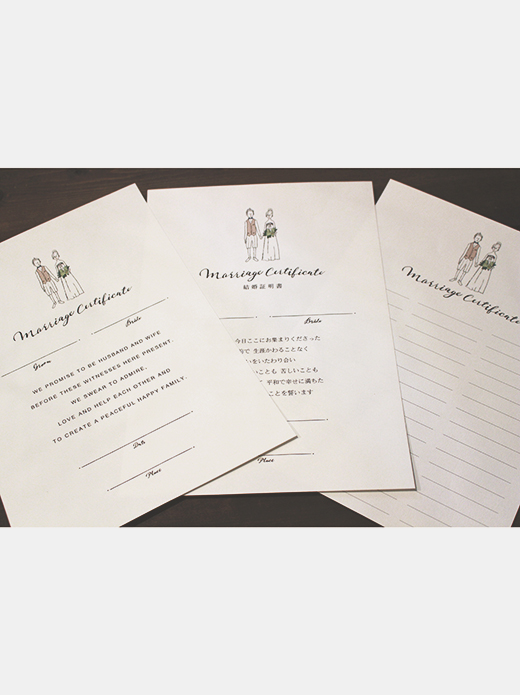 Marriage Certificate
Groom
Bride
WE PROMISE TO BE HUSBAND AND WIFE
BEFORE THESE WITNESSES HERE PRESENT.
WE SWEAR TO ADMIRE,
LOVE AND HELP EACH OTHER AND
TO CREATE A PEACEFUL HAPPY FAMILY.
Date
Place
Marriage Certificate
結婚証明書
Bride
今日ここにお集まりくださった
で 生涯かわることなく
いをいたわり合い
いことも 苦しいことも
平和で幸せに満ちた
ことを誓います
Place
Marriage Certificate